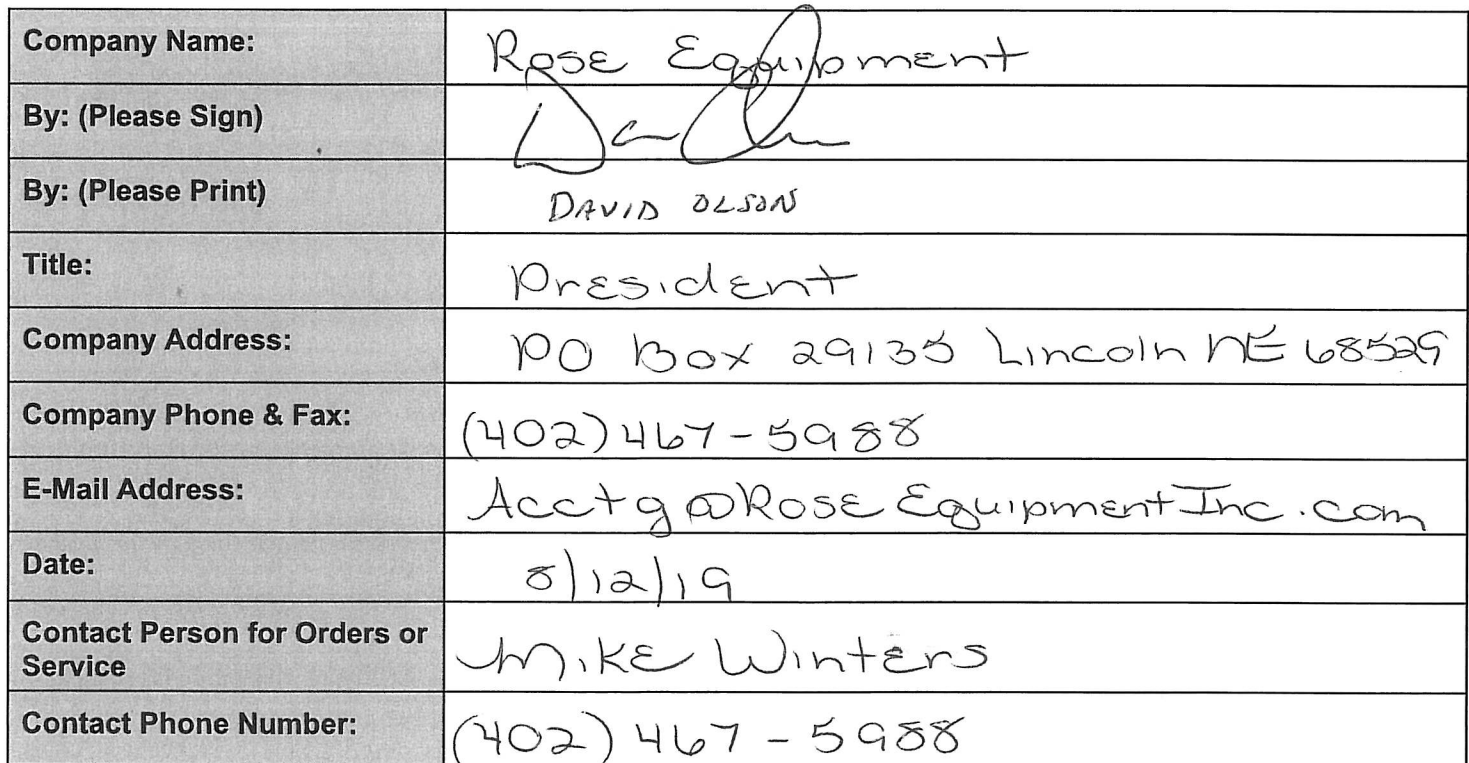 Company Name: Rose Equipment
By: (Please Sign)
By: (Please Print) DAVID OLSON
Title: President
Company Address: PO Box 29135 Lincoln NE 68529
Company Phone & Fax: (402) 467-5988
E-Mail Address: Acctg@RoseEquipmentInc.com
Date: 8/12/19
Contact Person for Orders or
Service Mike Winters
Contact Phone Number: (402) 467-5988